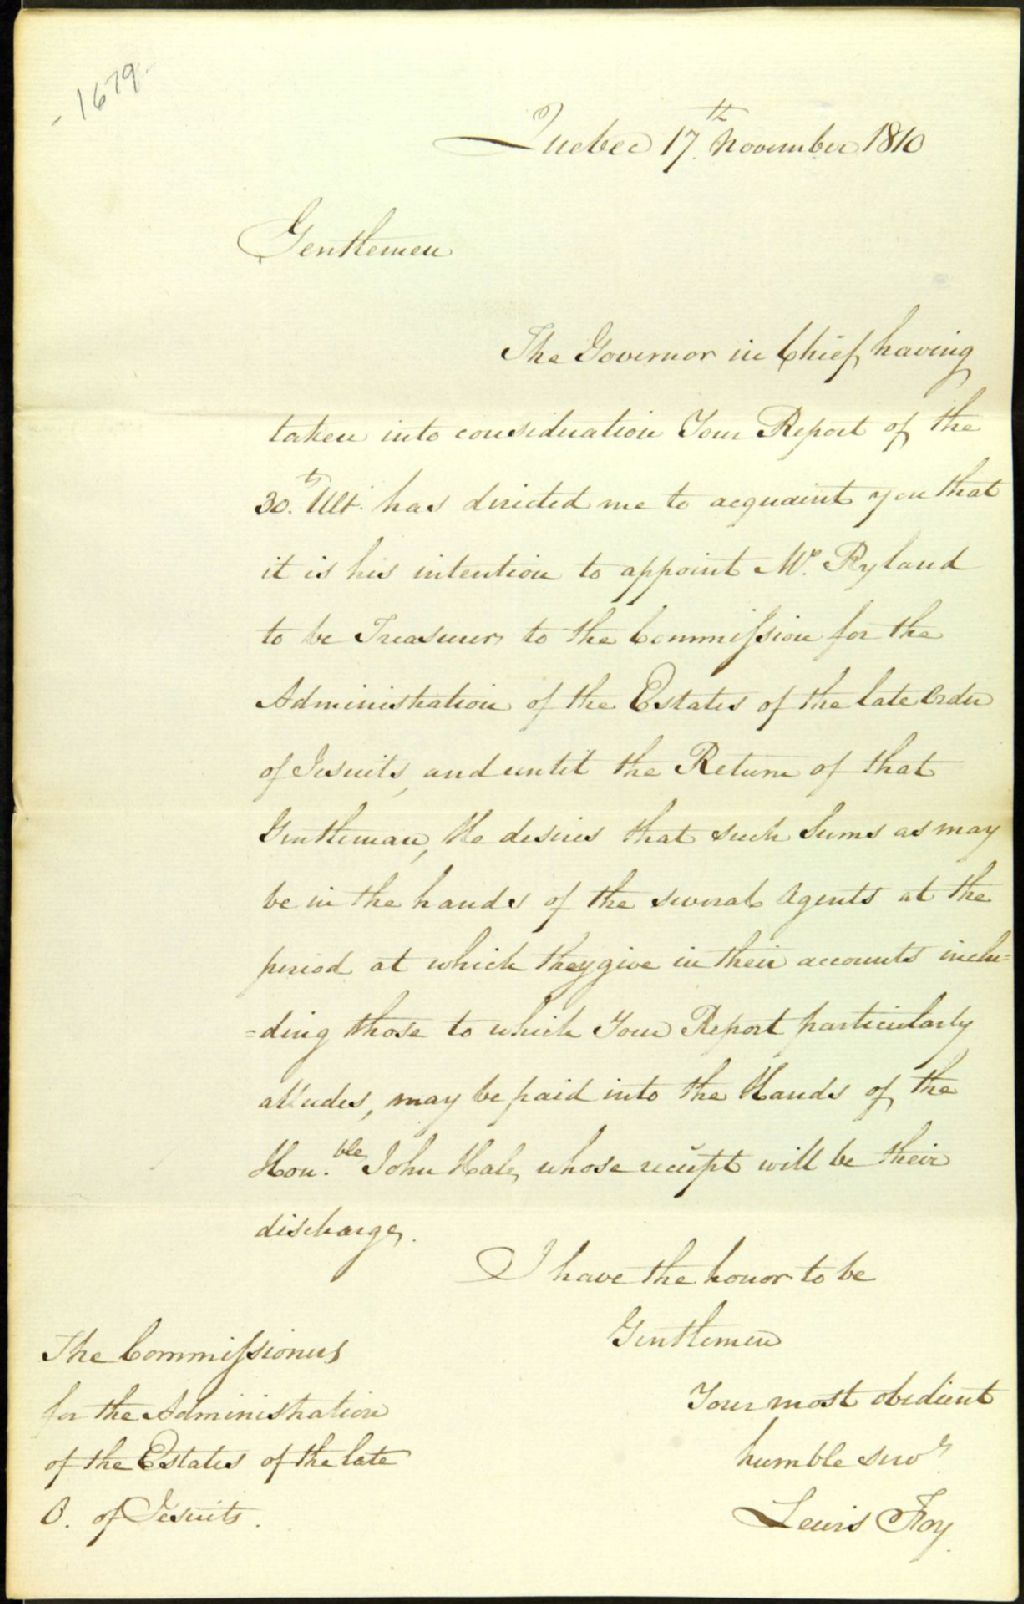 -1679-
Quebec 17th November 1810
Gentlemen
The Governor in Chief having
taken into consideration Your Report of the
30th Ult. has directed me to acquaint you that
it is his intention to appoint Mr. Ryland
to be Treasurer to the Commission for the
Administration of the Estates of the late Order
of Jesuits, and until the Return of that
Gentleman, He desires that such Sums as may
be in the hands of the several Agents at the
period at which they give in their accounts inclu=
=ding those to which Your Report particularly
alludes, may be paid into the Hands of the
Hon.ble John Hale, whose receipt will be their
discharge.
I have the honor to be
Gentlemen
Your most obedient
humble servt
Lewis Foy
The Commissioners
for the Administration
of the Estates of the late
O. of Jesuits.